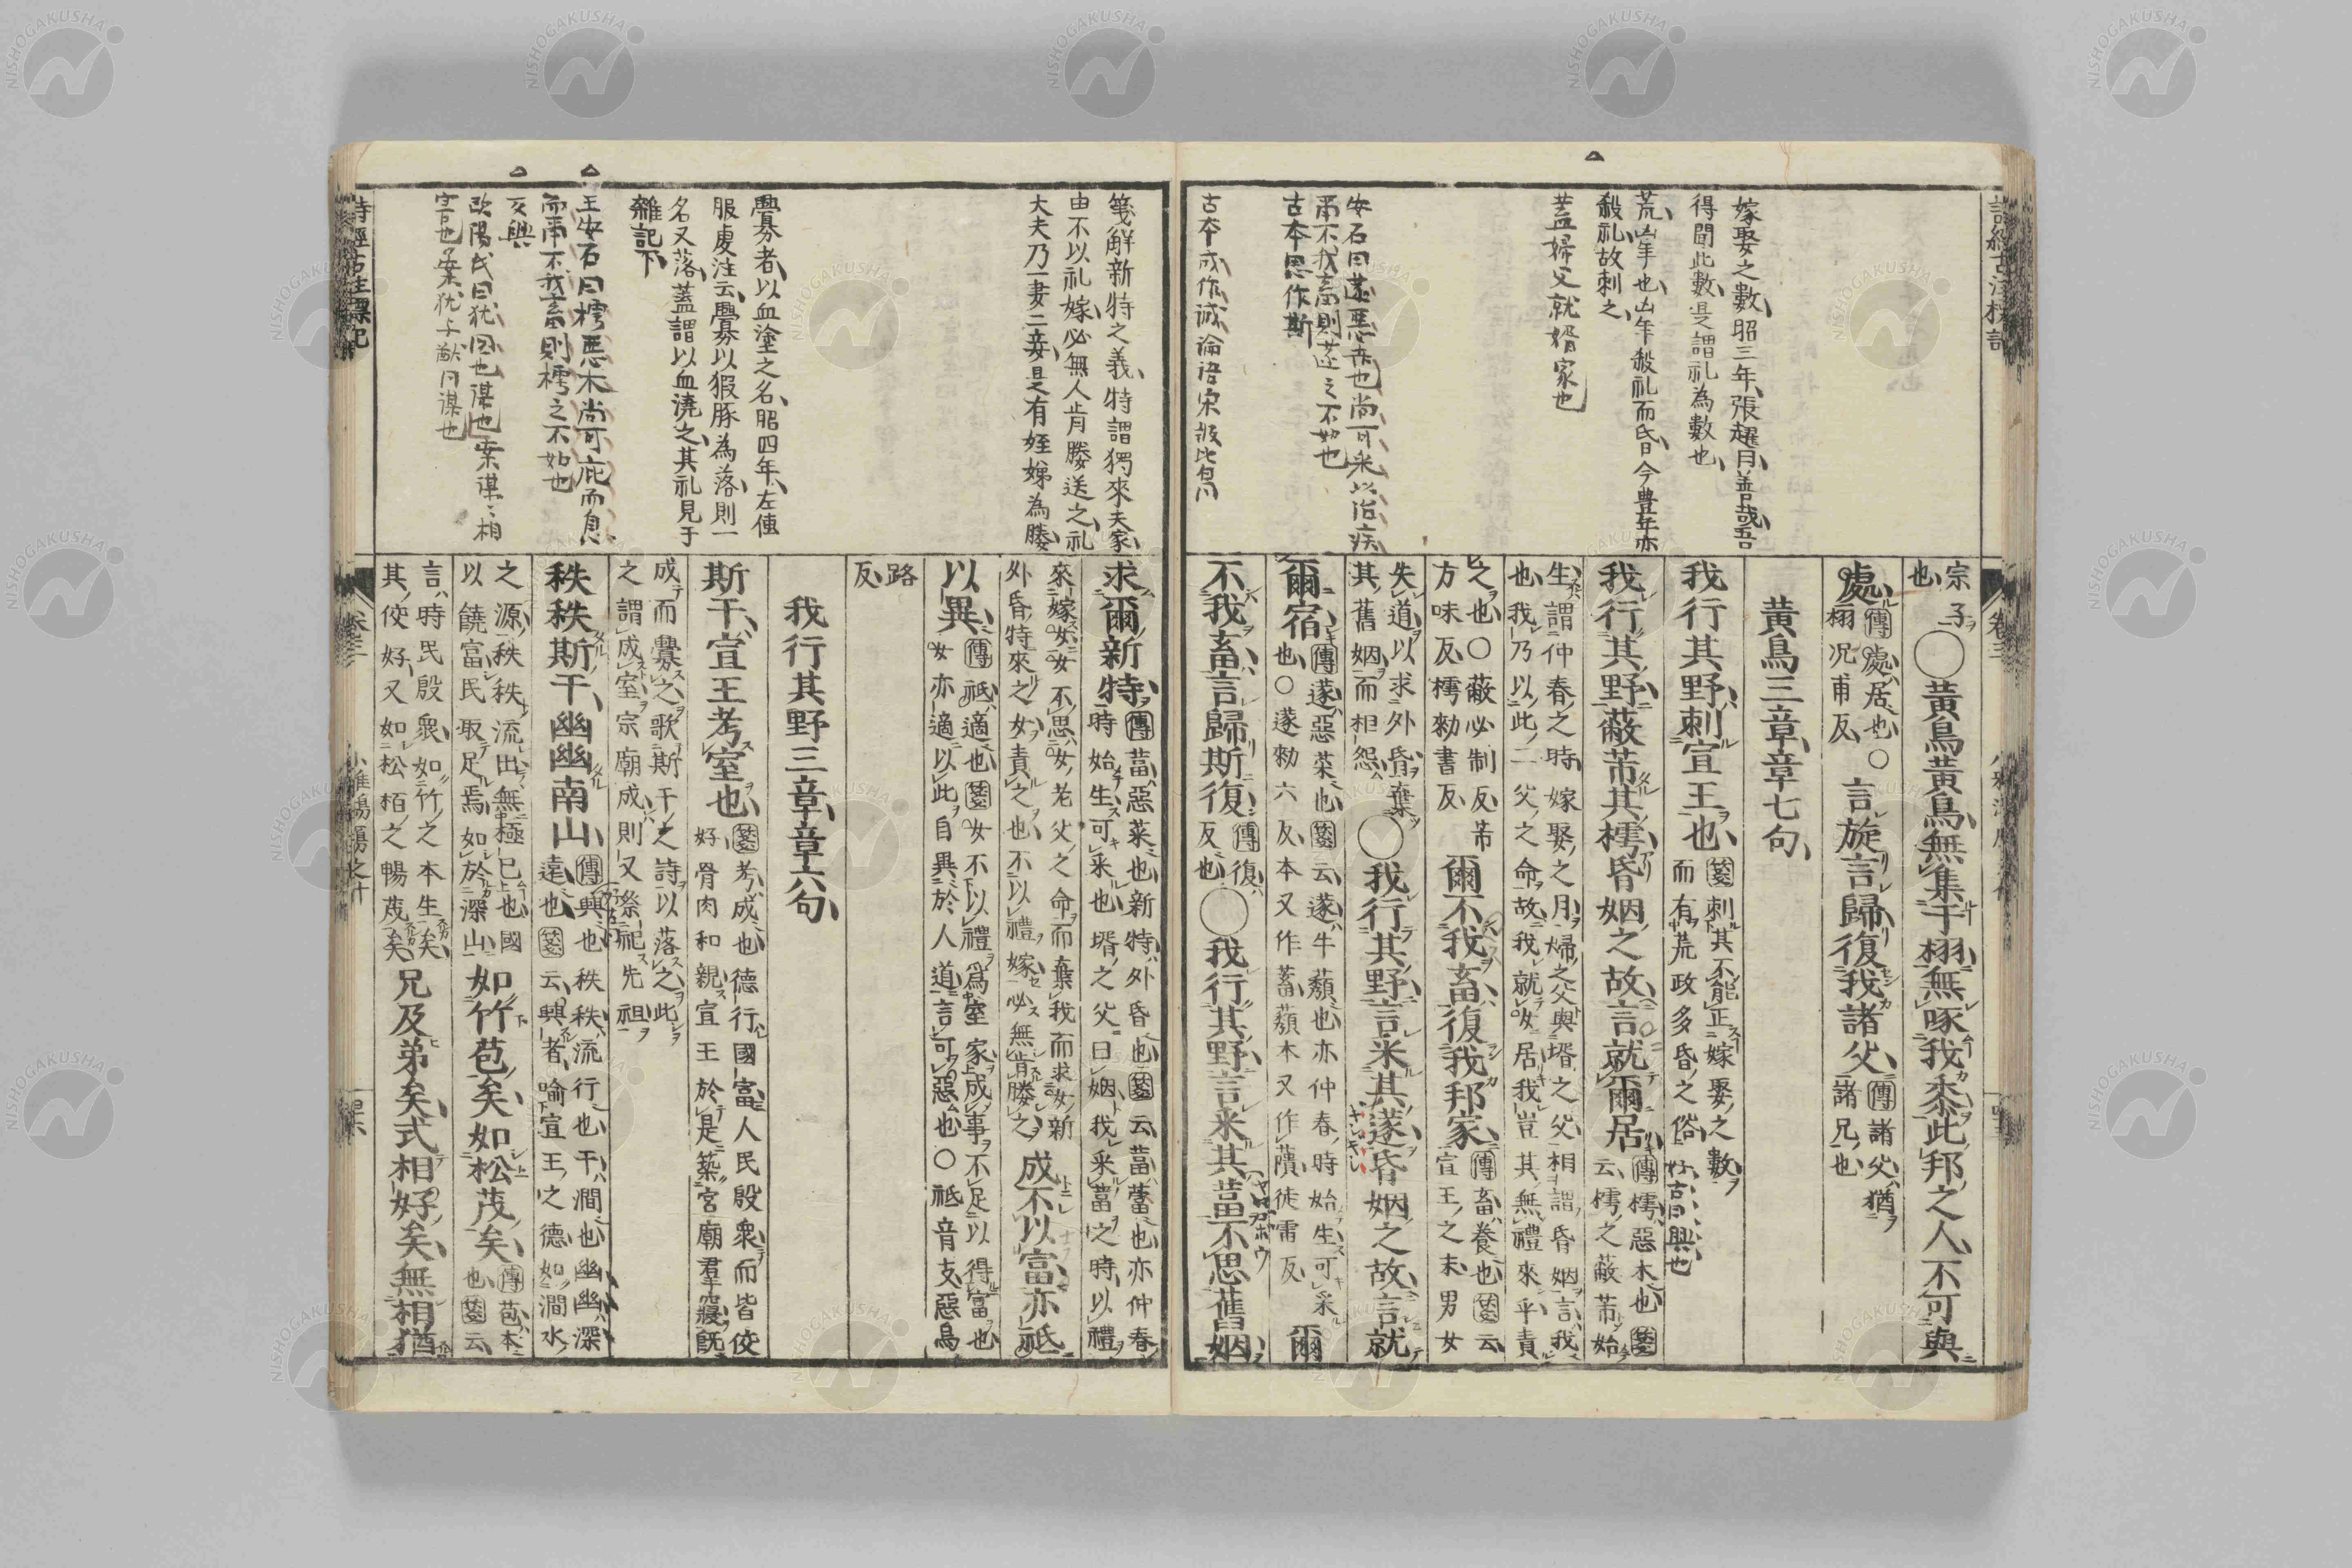 嫁娶之數昭三年張趯曰善哉吾
得聞此數是謂礼為數也
荒凶年也凶年殺礼而昏今豊年亦
殺礼故刺之
蓋婦父就婿家也
安石曰蓫惡菜也尚可采以治疾
而不我畜則蓫之不如也
古本思作斯
古本成作誠論語宋版比自同
宗子
也
○黃鳥黃鳥無集于栩無啄我黍此邦之人不可與
處
傳處居也○
栩况甫反
言旋言歸復我諸父
傳諸父猶
諸兄也
黃鳥三章章七句
我行其野刺宣王也
箋刺其不能正嫁娶之數
而有荒政多昏之俗
好古曰興也
我行其野蔽芾其樗昏姻之故言就爾居
傳樗惡木也箋
云樗之蔽芾始
生謂仲春之時嫁娶之月婦之父與壻之父相謂昏姻言我
也我乃以此二父之命故我就女居我豈其無禮來乎責
之也○蔽必制反芾
方味反樗勑書反
爾不我畜復我邦家
傳畜養也箋云
宣王之末男女
失道以求外昏棄
其舊姻而相怨
○我行其野言采其蓫昏姻之故言就
爾宿
傳蓫惡菜也箋云蓫牛蘈也亦仲春時始生可采
也○蓫勑六反本又作蓄蘈本又作藬徒雷反
爾
不我畜言歸斯復
傳復
反也
○我行其野言采其葍不思舊姻
箋解新特之義特謂獨來夫家
由不以礼嫁必無人肯媵送之礼
大夫乃一妻二妾是有姪娣為媵
釁者以血塗之名昭四年左傳
服虔注云釁以豭豚為落則一
名又落蓋謂以血澆之其礼見于
雜記下
王安石曰樗惡木尚可庇而息
而爾不我畜則樗之不如也
歐陽氏曰犹図也謀也案謀相
害也案犹与猷同謀也
求爾新特
傳葍惡菜也新特外昏也箋云葍䔰也亦仲春
時始生可采也壻之父曰姻我采葍之時以禮
來嫁女女不思女老父之命而棄我而求女新
外昏特來之女責之也不以禮嫁必無肯媵之
成不以富亦祗
以異
傳祗適也箋女不以禮爲室家成事不足以得富也
女亦適以此自異於人道言可惡也○祗音支惡烏
路
反
我行其野三章章六句
斯干宣王考室也
箋考成也德行國富人民殷衆而皆佼
好骨肉和親宣王於是築宮廟羣寢既
成而釁之歌斯干之詩以落之此
之謂成室宗廟成則又祭祀先祖
秩秩斯干幽幽南山
傳興也秩秩流行也干澗也幽幽深
遠也箋云興者喻宣王之德如澗水
之源秩秩流出無極已也國
以饒富民取足焉如於深山
如竹苞矣如松茂矣
傳苞本
也箋云
言時民殷衆如竹之本生矣
其佼好又如松栢之暢茂矣
兄及弟矣式相好矣無相猶